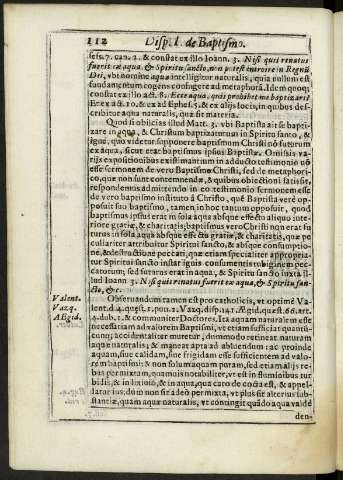 112 Disp. I. de Baptismo.
sess. 7. can. 2. & constat ex illo Ioann. 3. Nisi quis renatus
fuerit ex aqua, & Spiritu sancto, non potest introire in Regnū
Dei, vbi nomine aqua intelligitur naturalis, quia nullum est
fundamentum cogens confugere ad metaphorā. Idem quoq;
constat ex illo act. 8. Ecce aqua, quis prohibet me baptizari?
Et ex act. 10. & ex ad Ephes. 5. & ex alijs locis, in quibus de-
scribitur aqua naturalis, quā sit materia.
Quod si obiicias illud Matt. 3. vbi Baptista ait se bapti-
zare in aqua, & Christum baptizaturum in Spiritu sancto, &
igni, quo videtur supponere baptismum Christi nō futurum
ex aqua, sicut erat baptismus ipsus Baptistæ. Omissis va-
rijs expositionibus existimantium in adducto testimonio nō
esse sermonem de vero Baptismo Christi, sed de metaphori-
co, quæ non sunt contemnendæ, & quibus obiectioni satis sit,
respondemus admittendo in eo testimonio sermonem esse
de vero baptismo instituto à Christo, quē Baptista verè op-
posuit suo baptismo, tamen in hoc tantum opposuit, quod
baptismus ipsius erat in sola aqua absque effectu aliquo inte-
riore gratiæ, & charitatis; baptismus vero Christi non erat fu
turus in sola aqua absque effectu gratiæ, & charitatis, quæ pe
culiariter attribuitur Spiritui sancto, & absque consumptio-
ne, & destructione peccati, quæ etiam specialiter appropria-
tur Spiritui sancto instar ignis consumentis rubiginem pec-
catorum; sed futurus erat in aqua, & Spiritu sancto iuxta il-
lud Ioann 3. Nisi quis renatus fuerit ex aqua, & Spiritu san-
cto, &c.
Obseruandum tamen est pro catholicis, vt optimè Va-
lent. d. 4. quæst. 1. pun. 2. Vazq. disp. 142. Ægid. quæst. 66. art.
4. dub. 1. & communiter Doctores, Ita aquam naturalem esse
necessariam ad valorem Baptismi, vt etiam sufficiat quanti-
cunq; accidentaliter mutetur, dummodo retineat naturam
aquæ naturalis; & materes apta ad abluendum; ac proinde
aquam, siue calidam, siue frigidam esse sufficientem ad valo-
rem baptismi: & non solum aquam puram, sed etiam alijs re-
bus permixtam, quamuis notabiliter, vt est in fluminibus tur
bidis, & in lixiuio, & in aqua, qua caro decocta est, & appel-
latur ius: dummodo non sit adeò permixta, vt plus sit alterius sub-
stantiæ, quam aquæ naturalis, vt contingit quādo aqua valdè
den-
Valent.
Vazq.
Aegid.